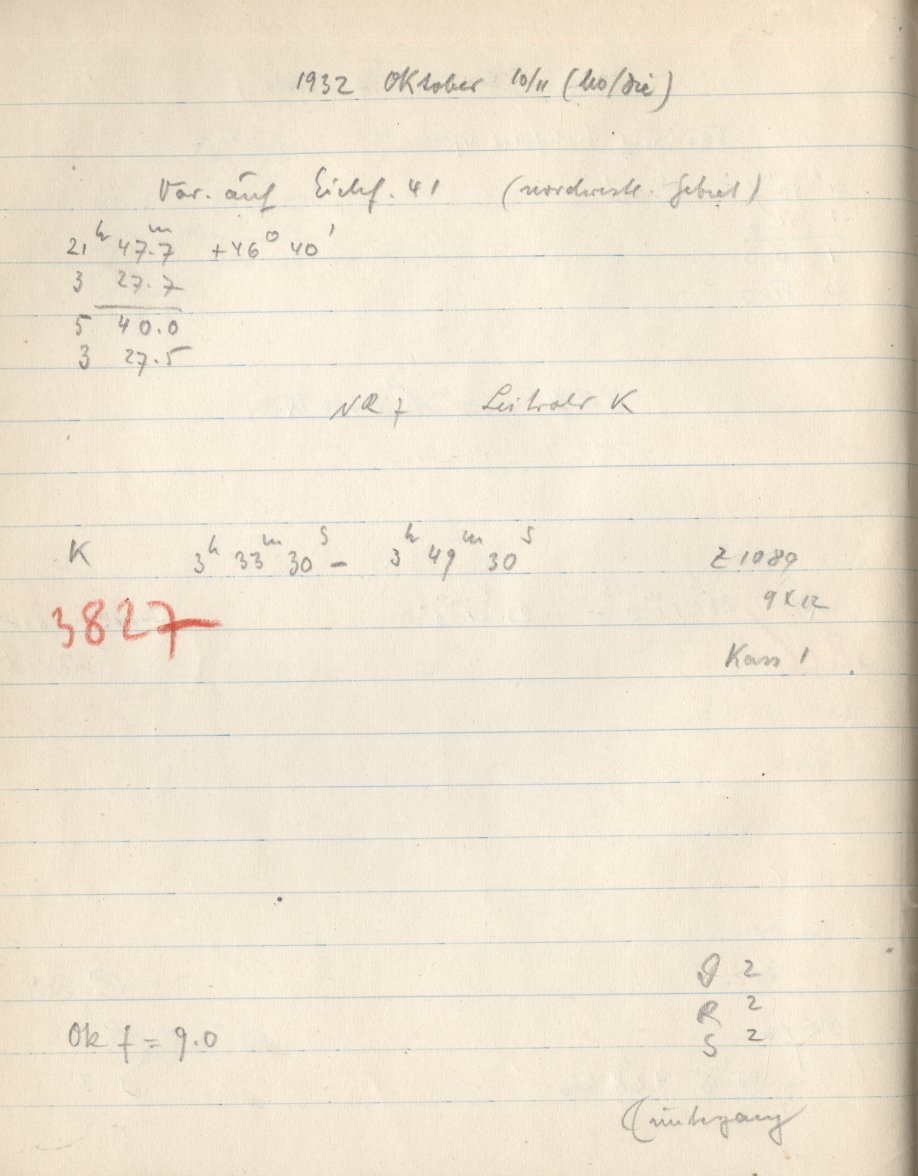 1932 Oktober 10/11 (Mo/Die)
Var. auf Eichf. 41 (nordwestl. Gebiet)
21ʰ 47.7ᵐ +46° 40'
3 27.7
5 40.0
3 27.5
NR 7 Leitrohr K
K 3ʰ 33ᵐ 30ˢ – 3ʰ 49ᵐ 30ˢ Z 1089
9x12
3827
Kass 1
2
R 2
Ok f = 9.0 S 2
untergang